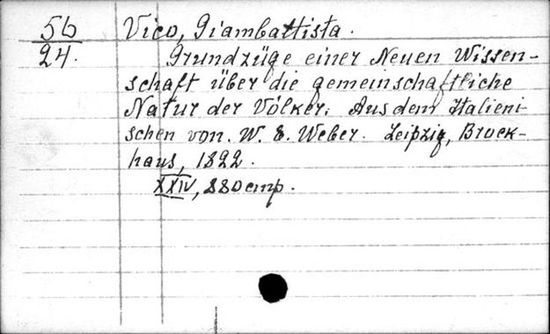 56 Vico, Giambattista.
24. Grundzüge einer Neuen Wissen-
schaft über die gemeinschaftliche
Natur der Völker. Aus dem Italieni-
schen von. W. E. Weber. Leipzig, Brock-
haus, 1822.
XXIV, 880 стр.